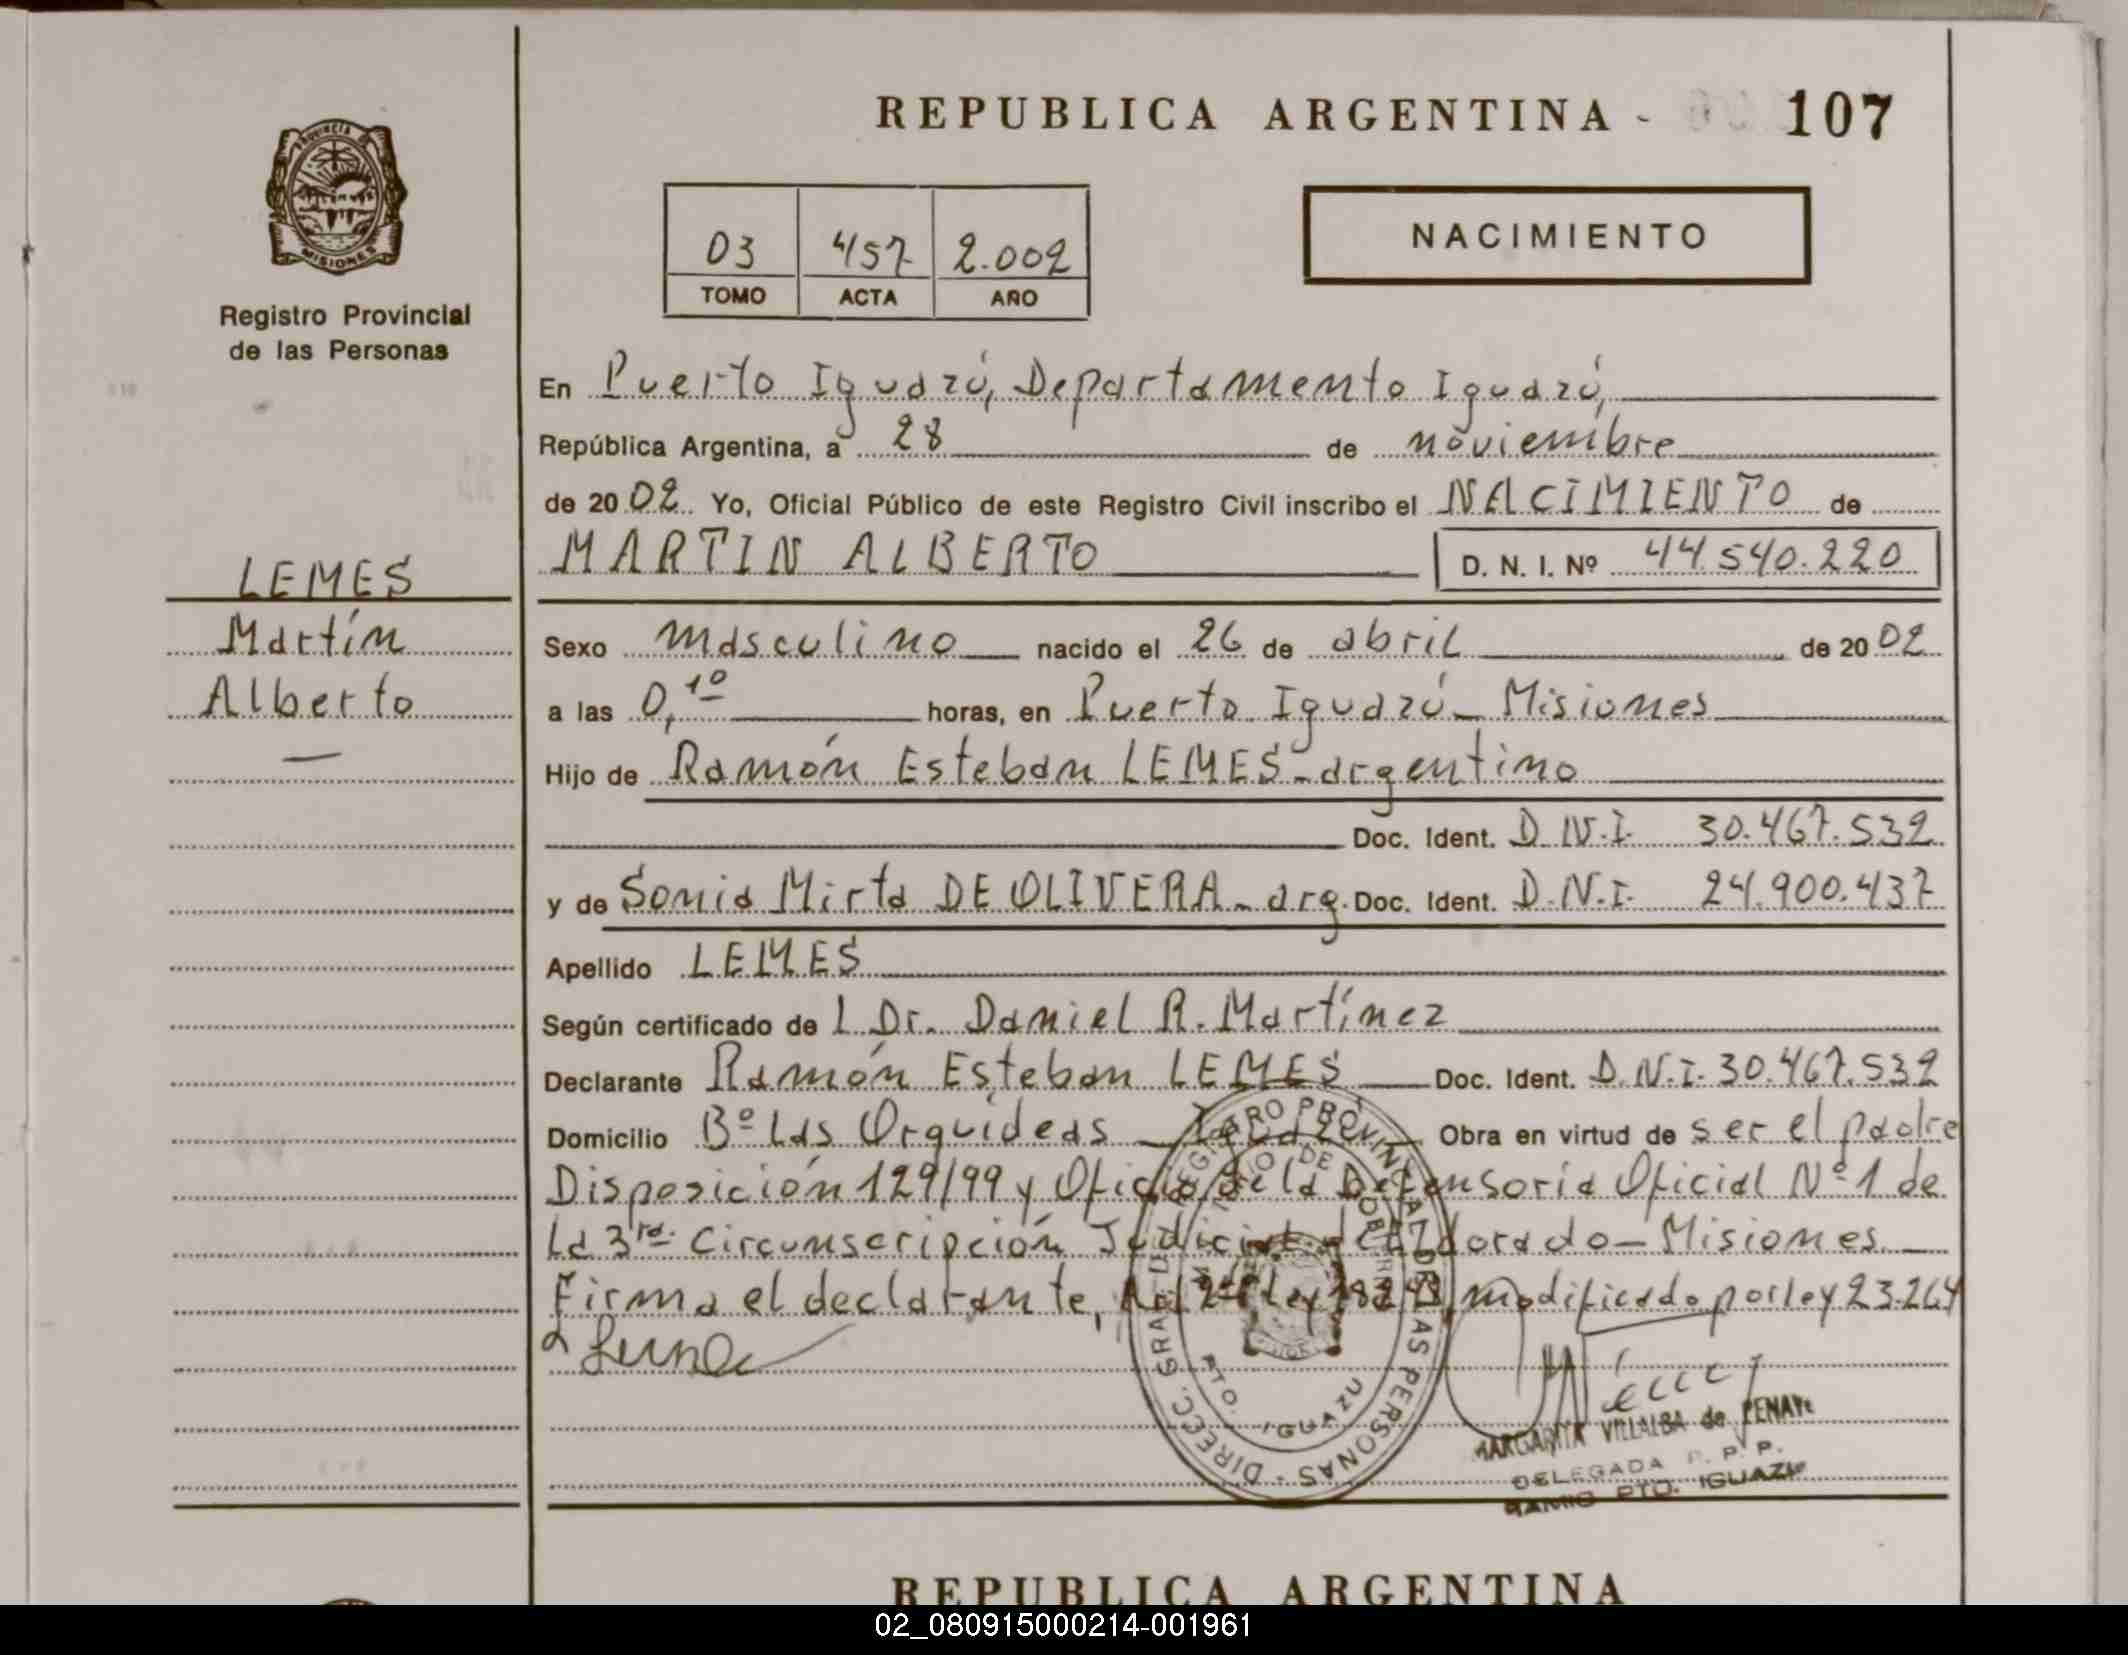 REPUBLICA ARGENTINA 107
PROVINCIA DE
MISIONES
Registro Provincial
de las Personas
03 457 2.002
TOMO ACTA AÑO
NACIMIENTO
En Puerto Iguazú, Departamento Iguazú,
República Argentina, a 28 de noviembre
de 2002 Yo, Oficial Público de este Registro Civil inscribo el NACIMIENTO de
MARTIN ALBERTO D. N. I. Nº 44.540.220
LEMES
Martín
Alberto
Sexo masculino nacido el 26 de abril de 2002
a las 0,10 horas, en Puerto Iguazú - Misiones
Hijo de Ramón Esteban LEMES - argentino
Doc. Ident. D.N.I. 30.467.532
y de Sonia Mirta DE OLIVERA - arg. Doc. Ident. D.N.I. 24.900.437
Apellido LEMES
Según certificado de l Dr. Daniel R. Martínez
Declarante Ramón Esteban LEMES Doc. Ident. D.N.I. 30.467.532
Domicilio Bº Las Orquídeas - Iguazú Obra en virtud de ser el padre
Disposición 129/99 y Oficio de la Defensoría Oficial Nº 1 de
la 3ra. Circunscripción Judicial de Eldorado - Misiones
Firma el declarante, modificado por ley 23.264
DIRECC. GRAL. DE REGISTRO PROVINCIAL DE LAS PERSONAS
MINISTERIO DE GOBIERNO
PTO. IGUAZU
MARGARITA VILLALBA de PENAYO
DELEGADA R. P. P.
PTO. IGUAZU
REPUBLICA ARGENTINA
02_080915000214-001961